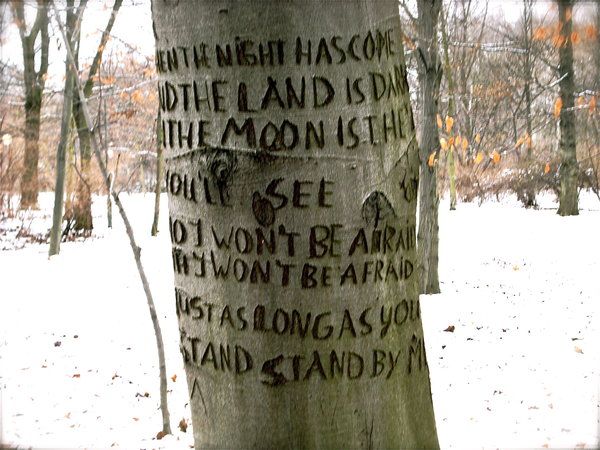 EN THE NIGHT HAS COME
ND THE LAND IS DAR
THE MOON IS THE
YOU'LL SEE
NO I WON'T BE AFRAID
I WON'T BE AFRAID
JUST AS LONG AS YOU
STAND STAND BY M